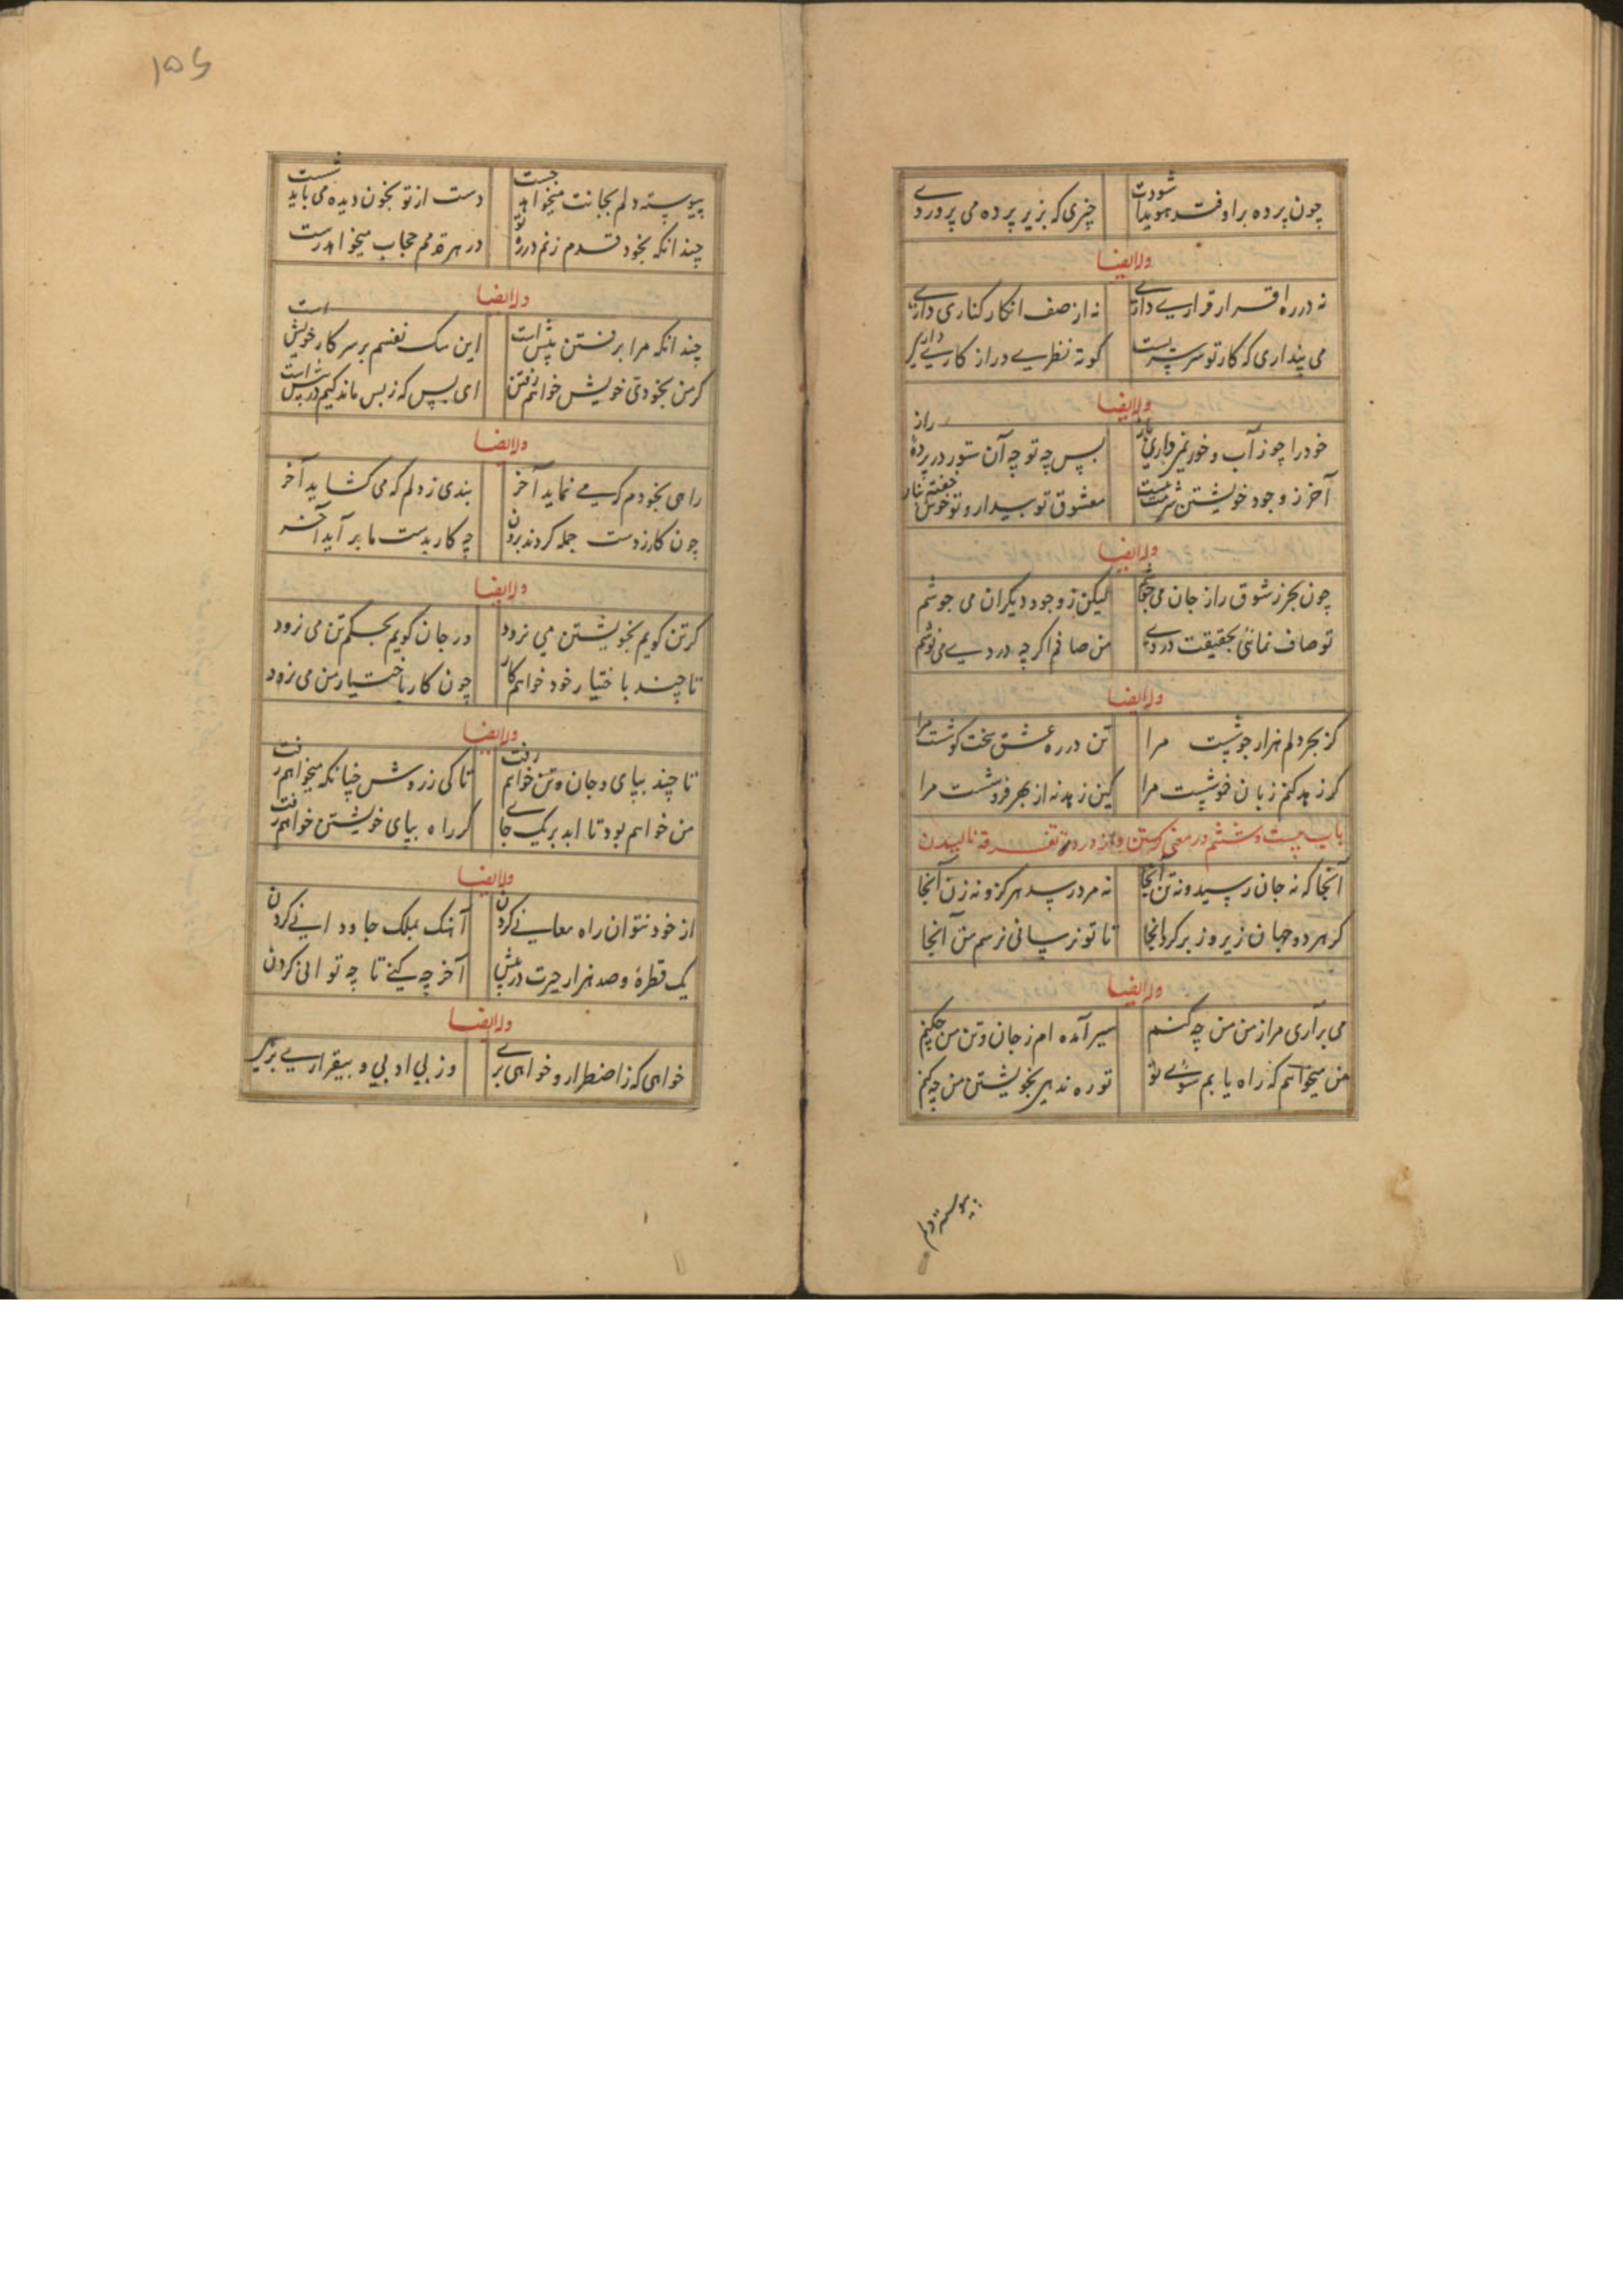 چون پرده براوفتد هویدا شودت چیزی که بزیر پرده می پروردی
وله ایضا
نه در ره اقرار قراری داری نه از صف انکار کناری داری
می پنداری که کار تو سرسریست کوته نظری دراز کاری داری
وله ایضا
خود را چو ز آب و خور نمی داری باز بس چه تو چه آن ستور در پرده راز
آخر ز وجود خویشتن شرمت نیست معشوق تو بیدار و تو خوش خفته بناز
وله ایضا
چون بحر ز شوق راز جان می جوشم لیکن ز وجود دیگران می جوشم
تو صاف نمائی بحقیقت دردی من صافم اگر چه دردیی می نوشم
وله ایضا
کز بحر دلم هزار جوشیست مرا تن در ره عشق سخت کوشیست مرا
گر زهد کنم زبان خوشیست مرا کین زهد نه از بهر فروشیست مرا
باب بیست و ششم در معنی گریستن و از درد تفرقه نالیدن
آنجا که نه جان رسید و نه تن آنجا نه مرد رسد هرگز و نه زن آنجا
گر هر دو جهان زیر و زبر گردانجا تا تو نرسانی نرسم من آنجا
وله ایضا
می برآری مرا ز من من چه کنم سیر آمده ام ز جان و تن من چکنم
من میخواهم که راه یابم سوی تو تو ره ندهی بخویشتن من چه کنم
پیوسته دلم
۱۵۶
پیوسته دلم بجانت میخواهد جست دست از تو بخون دیده می باید شست
چندانکه بخود قدم زنم در ره تو در هر قدمم حجاب میخواهد رست
وله ایضا
چندانکه مرا برفتن پیش است این سگ نفسم بر سر کار خویش است
گر من بخودی خویش خواهم رفتن ای بس که ز پس ماندگیم در پیش است
وله ایضا
راهی بخودم کسی می نماید آخر بندی ز دلم که می گشاید آخر
چون کار ز دست جمله کردند برون چه کار بدست ما بر آید آخر
وله ایضا
گر تن گویم بخویشتن می نرود ور جان گویم بحکم تن می نرود
تا چند باختیار خود خواهم کار چون کار باختیار من می نرود
وله ایضا
تا چند بپای و جان و تن خواهم رفت تا کی ز روش چنانکه میخواهم رفت
من خواهم بود تا ابد بر یک جای گر راه بپای خویشتن خواهم رفت
وله ایضا
از خود نتوان راه معانی کردن آهنگ بملک جاودانی کردن
یک قطرۀ و صد هزار حیرت در پیش آخر چه کنی تا چه توانی کردن
وله ایضا
خواهی که ز اضطرار و خواهی بری وز بی ادبی و بیقراری بزیر